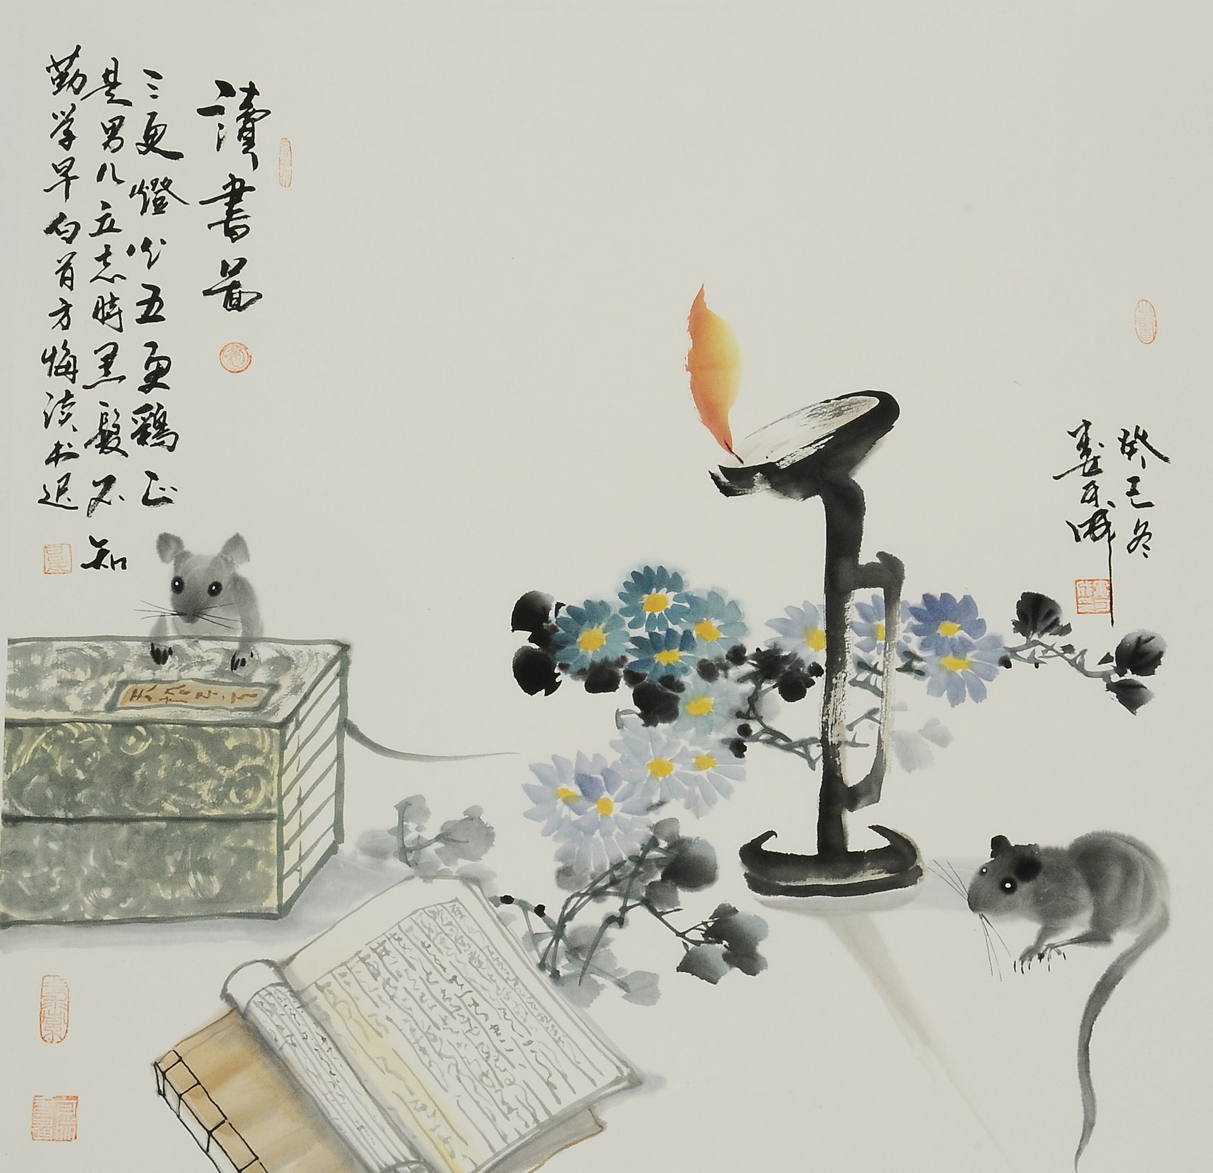 讀書圖
三更燈火五更鷄正
是男儿立志時黑髮不知
勤学早白首方悔读书迟
癸巳冬